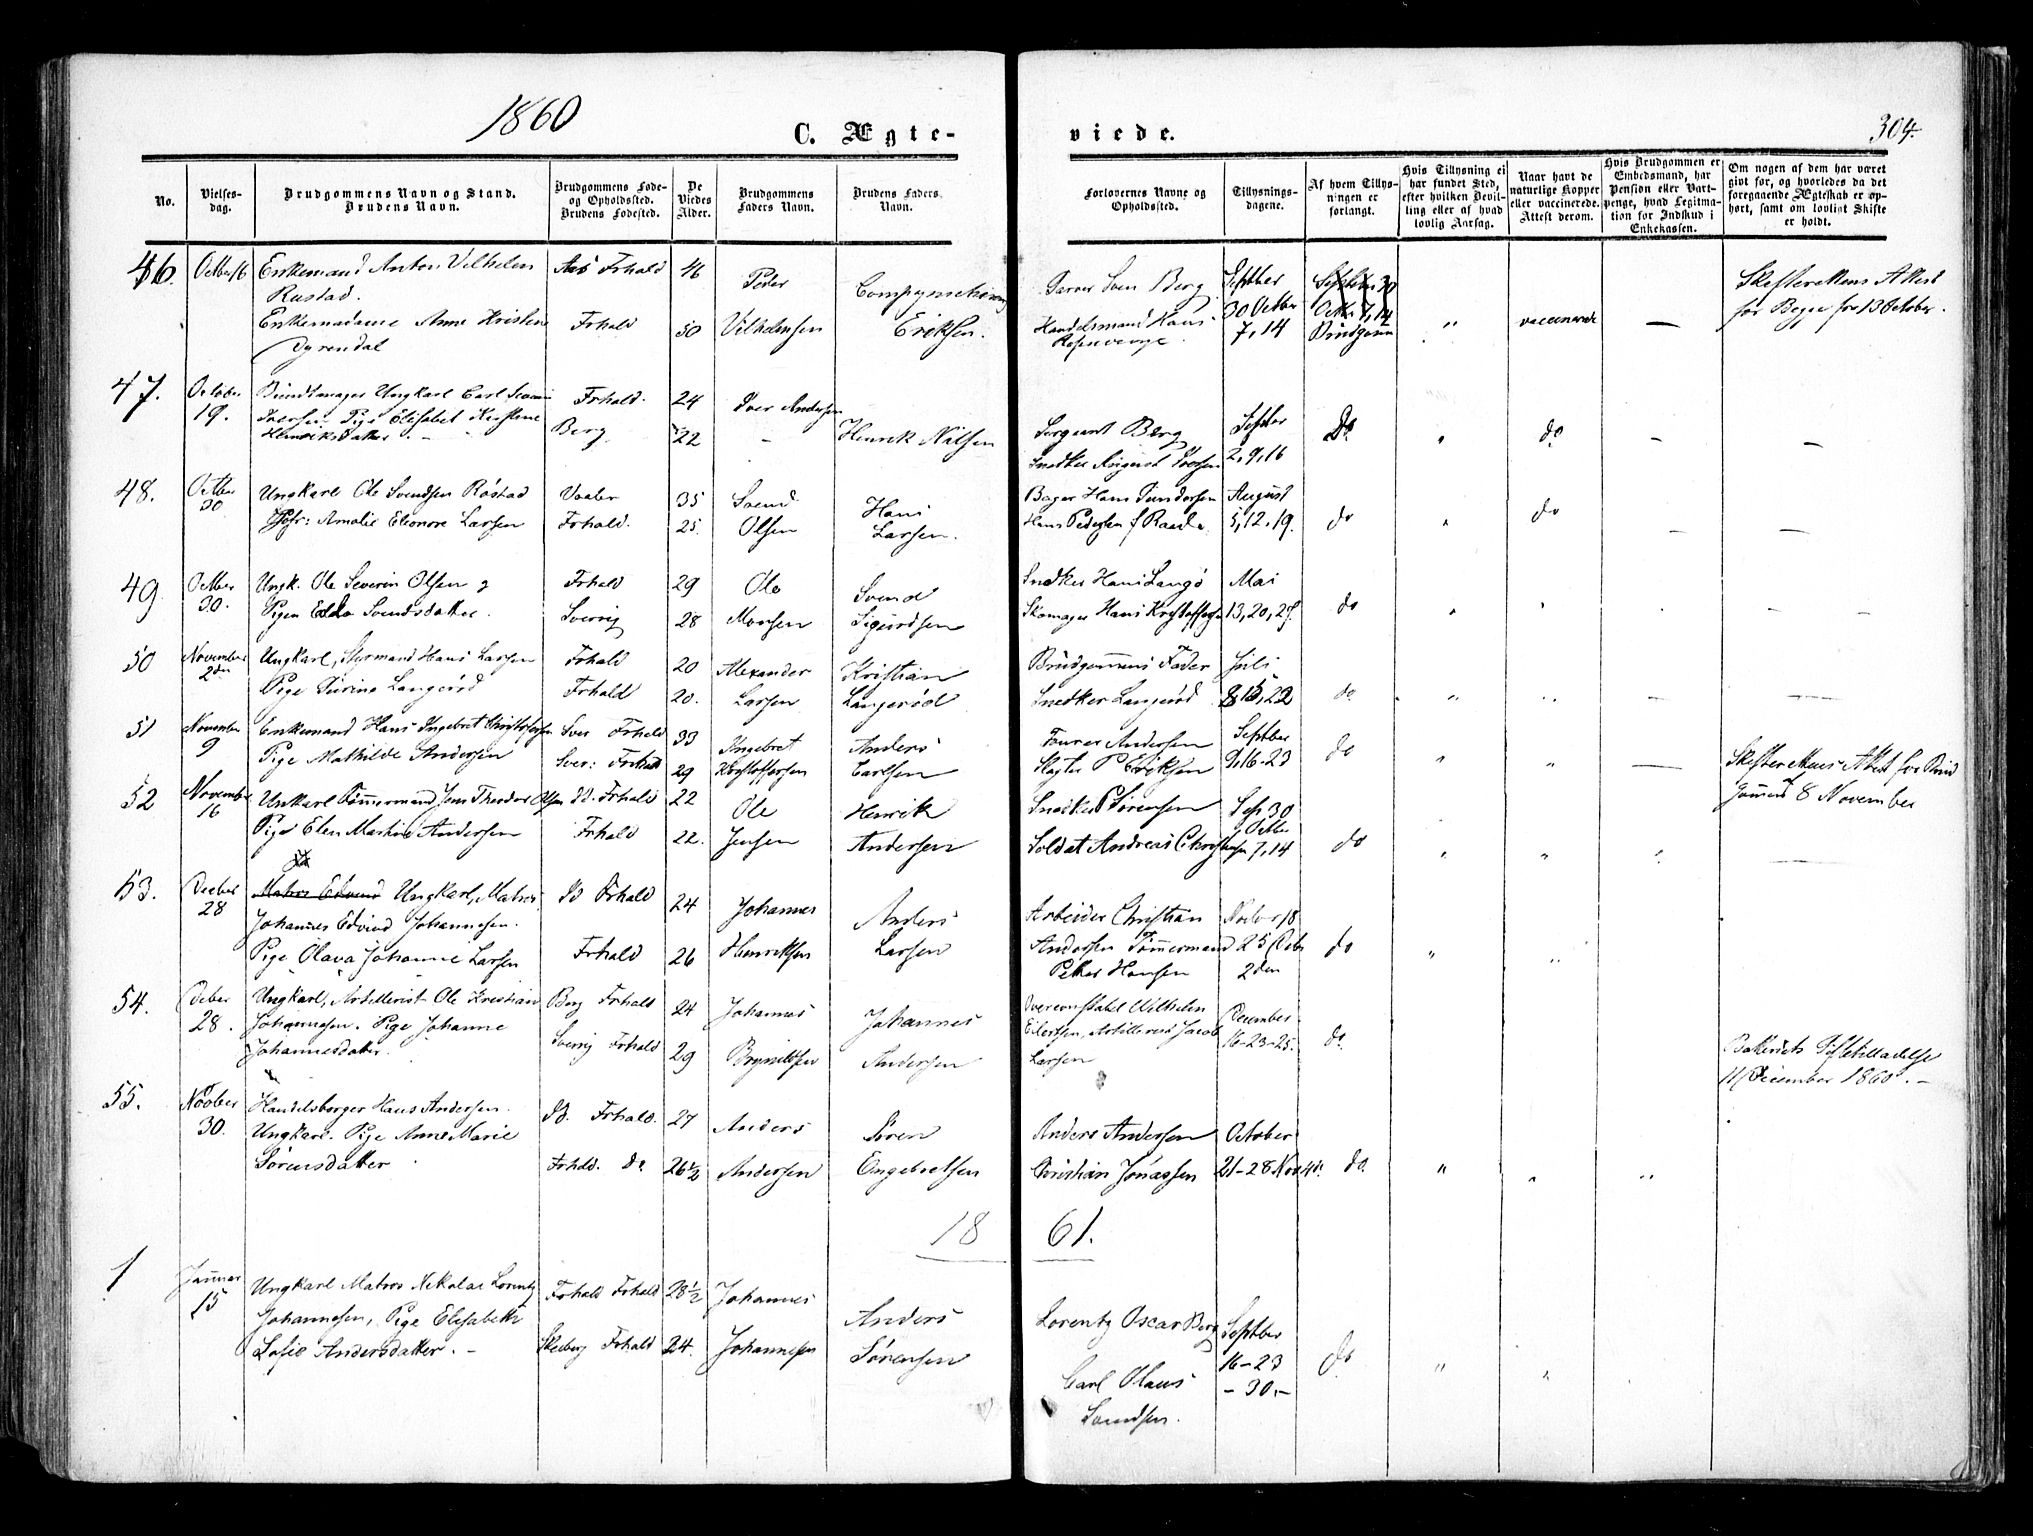 1860
C. Ægte-
viede.
304.
No.
Vielses-
dag.
Brudgommens Navn og Stand.
Brudens Navn.
Brudgommens Føde-
og Opholdssted.
Brudens Fødested.
De
Viedes
Alder.
Brudgommens
Faders Navn.
Brudens Faders
Navn.
Forlovernes Navne og
Opholdssted.
Tillysnings-
dagene.
Af hvem Tillys-
ningen er
forlangt.
Hvis Tillysning ei
har fundet Sted,
efter hvilken Bevil-
ling eller af hvad
lovlig Aarsag.
Naar havt de
naturlige Kopper
eller vaccinerede.
Attest derom.
Hvis Brudgommen er
Embedsmand, har
Pension eller Vart-
penge, hvad Legitima-
tion for Indskud i
Enkekassen.
Om nogen af dem har været
givt før, og hvorledes da det
foregaaende Ægteskab er op-
hørt, samt om lovligt Skifte
er holdt.
46. Octbr 16 Enkemand Anton Vilhelm
Rustad.
Enkemadame Anne Kristine
Dyrendal
Aas Frhald
Frhald
46
50
Peder
Vilhelmsen
Eriksen.
Garver Sven Berg
Handelsmand Hans
Septber
30 Octber
7, 14
Septber 30
Octbr 7, 14
Brudgom
" vaccinerede —
Skifterettens Attest
for Begge fra 13 October.
47. October
19. Ungkarl Carl
Iversen Pige Elisabet Kirstine
Henriksdatter. -
Frhald.
Berg
24
22
Iver Andersen
- Henrik Nilsen
Sergeant Berg
Snedker August Iversen
Septber
2, 9, 16
Do " do — —
48. Octber
30 Ungkarl Ole Svendsen Røstad
Jfr: Amalie Eleonore Larsen
Vaaler
Frhald.
35
25.
Svend
Olsen
Hans
Larsen.
Bager Hans Gundersen
Hans Pedersen f Raade
August
5, 12, 19.
do " do — —
49. Octber
30. Ungk. Ole Severin Olsen &
Pigen Edda Svendsdatter.
Frhald
Sverrig
29
28
Ole
Monsen
Svend
Sigurdsen
Snedker Hans Langø
Skomager Hans Kristoffersen
Mai
13, 20, 27.
do " " — —
50 November
2den Ungkarl, Styrmand Hans Larsen
Pige Turine Langerød
Frhald
Frhald
20
20.
Alexander
Larsen
Kristian
Langerød
Brudgommens Fader
Snedker Langerød
Juli
8 15, 22
do " " — —
51 November
9 Enkemand Hans Ingebret Christoffersen
Pige Mathilde Andersen
Sver Frhald
Sver: Frhald
33
29
Ingebret
Kristoffersen
Anders
Carlsen
Fourer Andersen
Slagter P Eriksen
Septber
9, 16-23
do " " —
Skifterettens Attest for Brud
gommen 8 November
52 November
16 Unkarl Tømmermand Jens Theodor Olsen
Pige Elen Martine Andersen
Id. Frhald
Frhald
22
22.
Ole
Jensen
Henrik
Andersen
Snedker P Sørensen
Soldat Andreas Christensen
Sep 30
Octbr
7, 14
do " " " —
53. Decber
28 Matros Edvind Ungkarl, Matros
Johannes Edvind Johannesen.
Pige Olava Johanne Larsen
Id Frhald
Frhald
24
26
Johannes
Henriksen
Anders
Larsen
Arbeider Christian
Andersen Tømmermand
Petter Hansen
Novbr 18
25 Decbr
2den
do " "
54. Decber
28. Ungkarl, Artillerist Ole Kristian
Johannesen. Pige Johanne
Johannesdatter.
Berg Frhald
Sverrig Frhald
24
29
Johannes
Brynildsen
Johannes
Andersen
Overconstabel Wilhelm
Eilersen, Artillerist Jacob
Larsen
December
16-23-25.
do.
11 December 1860. -
55. Novber
30. Handelsborger Hans Andersen.
Ungkarl. Pige Anne Marie
Sørensdatter
Id. Frhald.
Frhld. do
27
26 1/2
Anders
Andersen
Søren
Engebretsen
Anders Andersen
Christian Jonassen
October
21-28 Nov 4de
do. " " "
1861.
1 Januar
15 Ungkarl Matros Nikolai Lorentz
Johannesen, Pige Elisabeth
Sofie Andersdatter. -
Frhald Frhald
Skeberg Frhald
28 1/2
24.
Johannes
Johannesen
Anders
Sørensen
Lorentz Oscar Berg
Carl Olaus
Svendsen.
Septber
16-23
-30.-
do " "